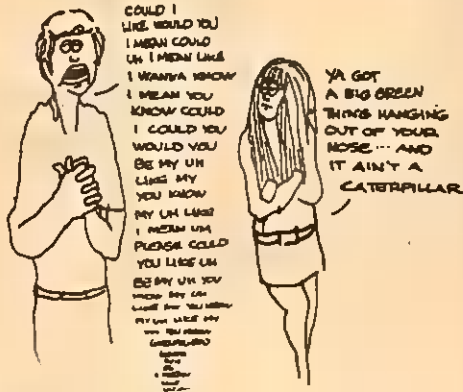 COULD I
LIKE WOULD YOU
I MEAN COULD
UH I MEAN LIKE
I WANNA KNOW
I MEAN YOU
KNOW COULD
I COULD YOU
WOULD YOU
BE MY UH
LIKE MY
YOU KNOW
MY UH LIKE
I MEAN UM
PLEASE COULD
YOU LIKE UH
BE MY UH YOU
KNOW MY UH
LIKE MY YOU KNOW
MY UH LIKE MY
YOU KNOW
YA GOT
A BIG GREEN
THING HANGING
OUT OF YOUR
NOSE... AND
IT AIN'T A
CATERPILLAR